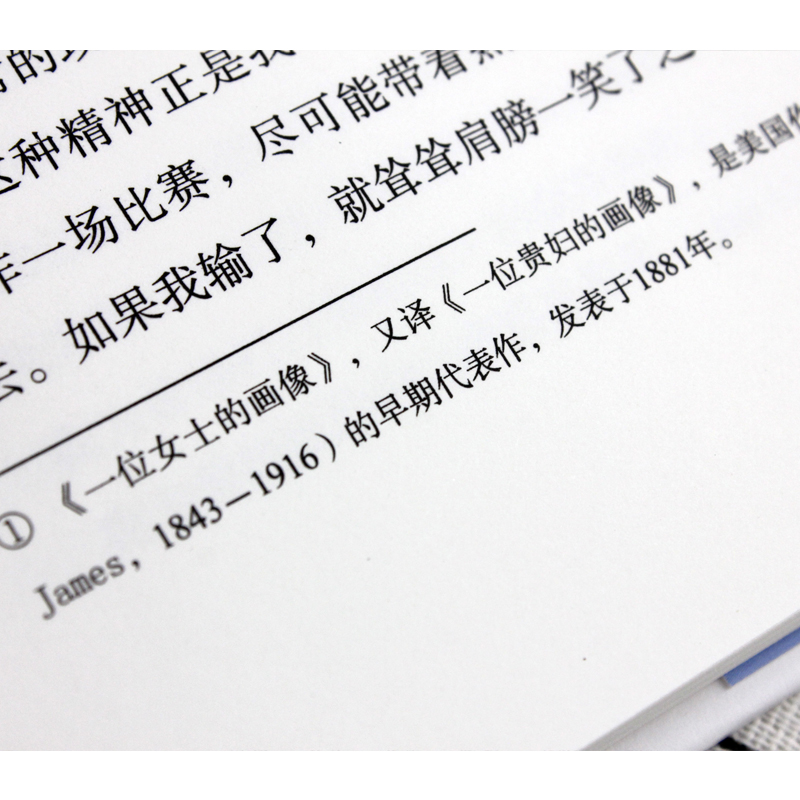 的
这种精神正是我
作一场比赛，尽可能带着
去。如果我输了，就耸耸肩膀一笑了之
① 《一位女士的画像》，又译《一位贵妇的画像》，是美国作
James，1843—1916）的早期代表作，发表于1881年。